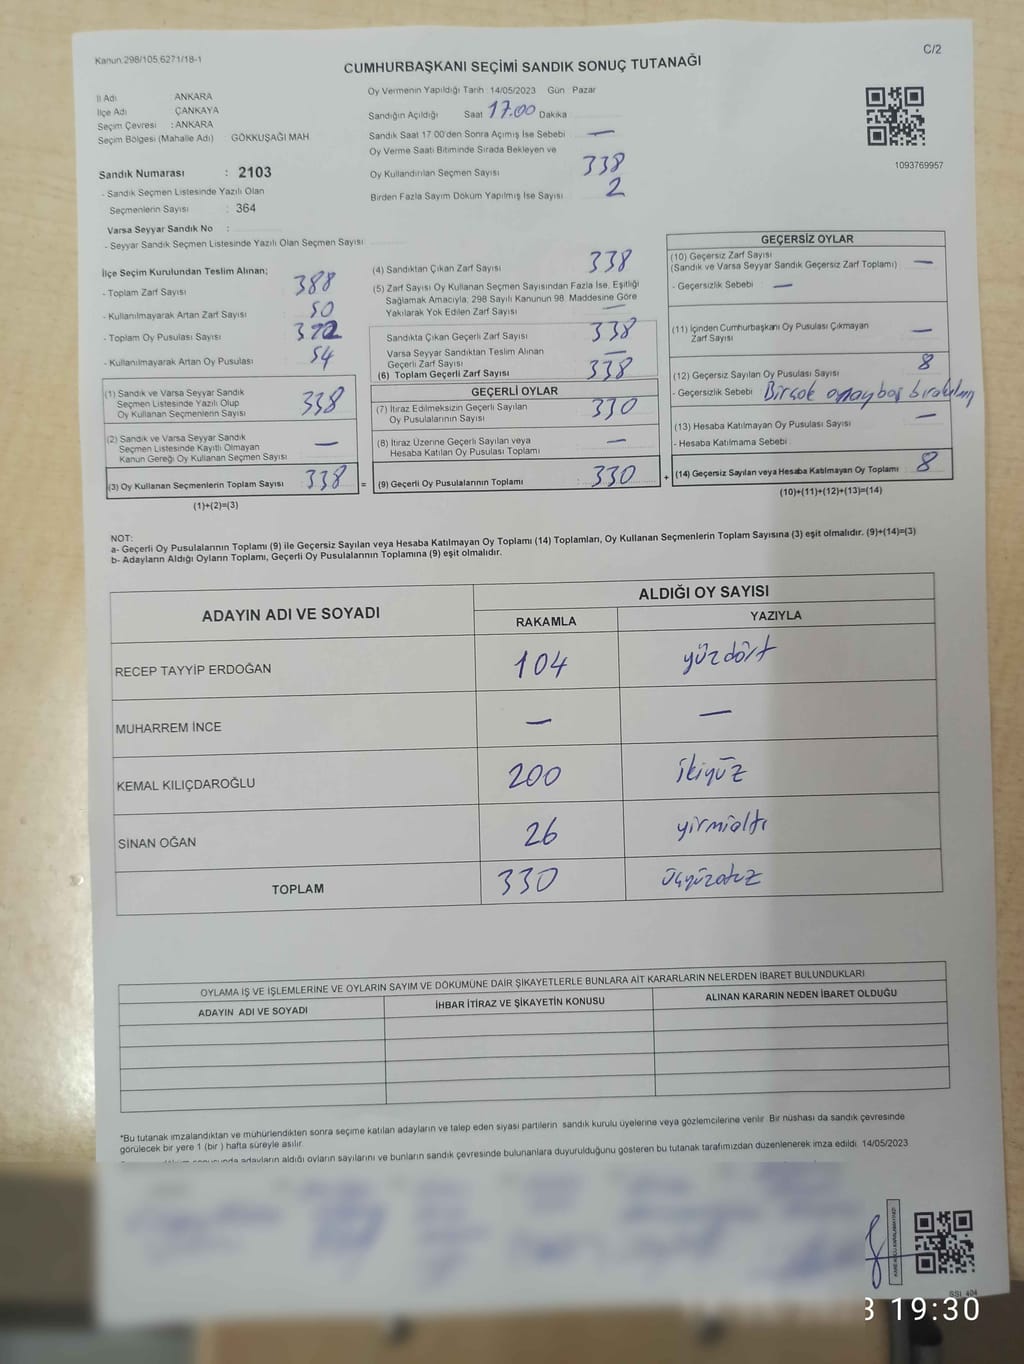 Kanun.298/105,6271/18-1
C/2
CUMHURBAŞKANI SEÇİMİ SANDIK SONUÇ TUTANAĞI
İl Adı : ANKARA
İlçe Adı : ÇANKAYA
Seçim Çevresi : ANKARA
Seçim Bölgesi (Mahalle Adı) : GÖKKUŞAĞI MAH
Sandık Numarası : 2103
- Sandık Seçmen Listesinde Yazılı Olan
Seçmenlerin Sayısı : 364
Varsa Seyyar Sandık No :
- Seyyar Sandık Seçmen Listesinde Yazılı Olan Seçmen Sayısı
Oy Vermenin Yapıldığı Tarih 14/05/2023 Gün Pazar
Sandığın Açıldığı Saat 17.00 Dakika
Sandık Saat 17.00'den Sonra Açımış İse Sebebi —
Oy Verme Saati Bitiminde Sırada Bekleyen ve
Oy Kullandırılan Seçmen Sayısı 338
Birden Fazla Sayım Döküm Yapılmış İse Sayısı 2
1093769957
İlçe Seçim Kurulundan Teslim Alınan;
- Toplam Zarf Sayısı 388
- Kullanılmayarak Artan Zarf Sayısı 50
- Toplam Oy Pusulası Sayısı
- Kullanılmayarak Artan Oy Pusulası 54
(1) Sandık ve Varsa Seyyar Sandık
Seçmen Listesinde Yazılı Olup
Oy Kullanan Seçmenlerin Sayısı 338
(2) Sandık ve Varsa Seyyar Sandık
Seçmen Listesinde Kayıtlı Olmayan
Kanun Gereği Oy Kullanan Seçmen Sayısı —
(3) Oy Kullanan Seçmenlerin Toplam Sayısı 338 =
(1)+(2)=(3)
(4) Sandıktan Çıkan Zarf Sayısı 338
(5) Zarf Sayısı Oy Kullanan Seçmen Sayısından Fazla İse, Eşitliği
Sağlamak Amacıyla, 298 Sayılı Kanunun 98. Maddesine Göre
Yakılarak Yok Edilen Zarf Sayısı —
Sandıkta Çıkan Geçerli Zarf Sayısı 338
Varsa Seyyar Sandıktan Teslim Alınan
Geçerli Zarf Sayısı —
(6) Toplam Geçerli Zarf Sayısı 338
GEÇERLİ OYLAR
(7) İtiraz Edilmeksizin Geçerli Sayılan
Oy Pusulalarının Sayısı 330
(8) İtiraz Üzerine Geçerli Sayılan veya
Hesaba Katılan Oy Pusulası Toplamı —
(9) Geçerli Oy Pusulalarının Toplamı : 330 +
GEÇERSİZ OYLAR
(10) Geçersiz Zarf Sayısı
(Sandık ve Varsa Seyyar Sandık Geçersiz Zarf Toplamı) —
- Geçersizlik Sebebi : —
(11) İçinden Cumhurbaşkanı Oy Pusulası Çıkmayan
Zarf Sayısı —
(12) Geçersiz Sayılan Oy Pusulası Sayısı 8
- Geçersizlik Sebebi Birçok onay boş
(13) Hesaba Katılmayan Oy Pusulası Sayısı —
- Hesaba Katılmama Sebebi
(14) Geçersiz Sayılan veya Hesaba Katılmayan Oy Toplamı 8
(10)+(11)+(12)+(13)=(14)
NOT:
a- Geçerli Oy Pusulalarının Toplamı (9) ile Geçersiz Sayılan veya Hesaba Katılmayan Oy Toplamı (14) Toplamları, Oy Kullanan Seçmenlerin Toplam Sayısına (3) eşit olmalıdır. (9)+(14)=(3)
b- Adayların Aldığı Oyların Toplamı, Geçerli Oy Pusulalarının Toplamına (9) eşit olmalıdır.
ADAYIN ADI VE SOYADI
ALDIĞI OY SAYISI
RAKAMLA YAZIYLA
RECEP TAYYİP ERDOĞAN 104 yüzdört
MUHARREM İNCE — —
KEMAL KILIÇDAROĞLU 200 ikiyüz
SİNAN OĞAN 26 yirmialtı
TOPLAM 330 üçyüzotuz
OYLAMA İŞ VE İŞLEMLERİNE VE OYLARIN SAYIM VE DÖKÜMÜNE DAİR ŞİKAYETLERLE BUNLARA AİT KARARLARIN NELERDEN İBARET BULUNDUKLARI
ADAYIN ADI VE SOYADI İHBAR İTİRAZ VE ŞİKAYETİN KONUSU ALINAN KARARIN NEDEN İBARET OLDUĞU
*Bu tutanak imzalandıktan ve mühürlendikten sonra seçime katılan adayların ve talep eden siyasi partilerin sandık kurulu üyelerine veya gözlemcilerine verilir. Bir nüshası da sandık çevresinde
görülecek bir yere 1 (bir) hafta süreyle asılır.
adayların aldığı oyların sayılarını ve bunların sandık çevresinde bulunanlara duyurulduğunu gösteren bu tutanak tarafımızdan düzenlenerek imza edildi. 14/05/2023
SSİ_404
3 19:30